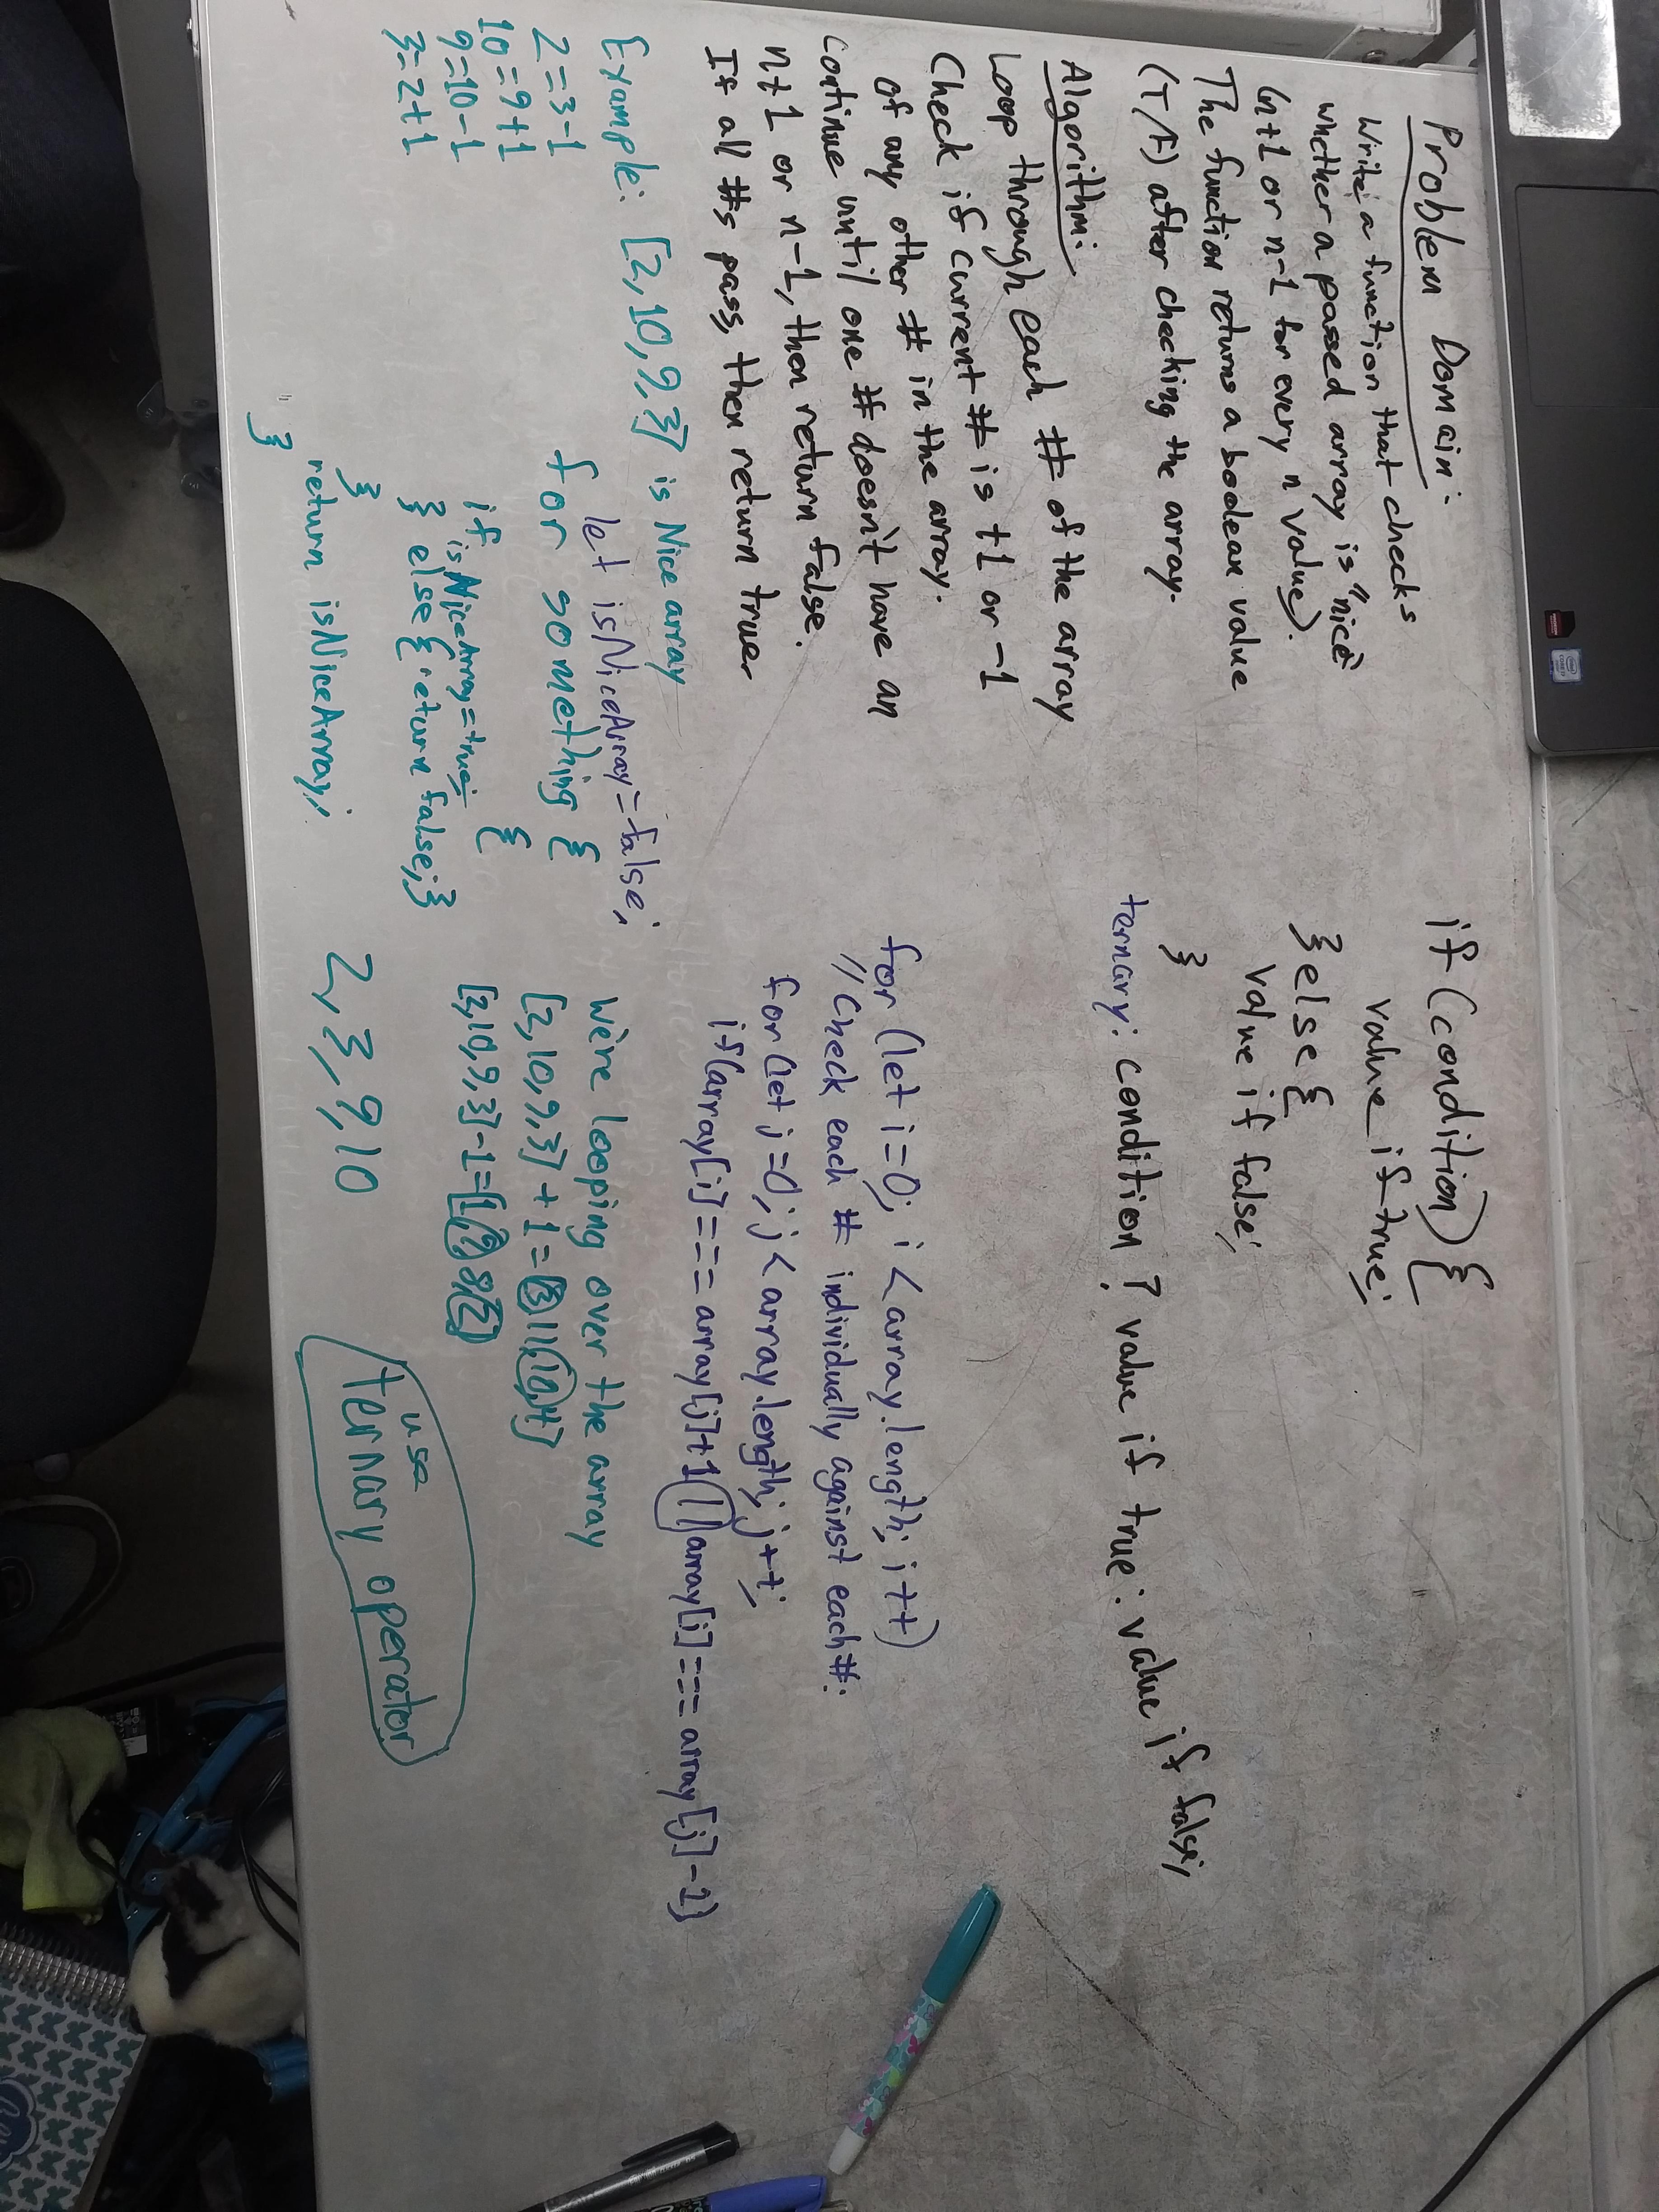 Problem Domain:
Write a function that checks
whether a passed array is "nice"
(n+1 or n-1 for every n value).
The function returns a boolean value
(T/F) after checking the array.
Algorithm:
Loop through each # of the array
Check if current # is +1 or -1
of any other # in the array.
Continue until one # doesn't have an
n+1 or n-1, then return false.
If all #s pass, then return true
Example: [2,10,9,3] is Nice array
2=3-1
10=9+1
9=10-1
3=2+1
let isNiceArray=false;
for something {
if {
isNiceArray=true;
} else { return false; }
}
return isNiceArray;
}
if (condition) {
value if true;
} else {
value if false;
}
ternary: condition ? value if true : value if false;
for (let i=0; i < array.length; i++)
// Check each # individually against each #.
for (let j=0; j < array.length; j++;
if (array[i] === array[j]+1 || array[i] === array[j]-1)
We're looping over the array
[2,10,9,3] + 1 = [3,11,10,4]
[2,10,9,3] -1 = [1,9,8,2]
2, 3, 9, 10
use
ternary operator